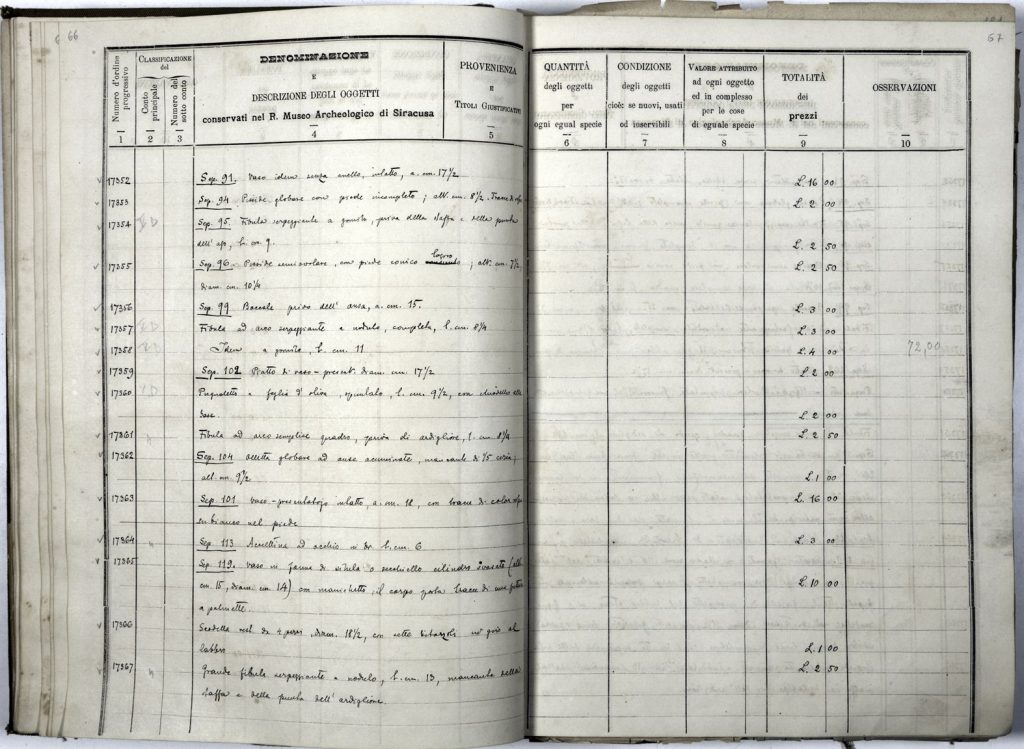 66
67
Numero d'ordine progressivo
CLASSIFICAZIONE del
Conto principale
Numero del sotto conto
DENOMINAZIONE
E
DESCRIZIONE DEGLI OGGETTI
conservati nel R. Museo Archeologico di Siracusa
PROVENIENZA
E
TITOLI GIUSTIFICATIVI
QUANTITÀ
degli oggetti
per
ogni egual specie
CONDIZIONE
degli oggetti
cioè: se nuovi, usati
od inservibili
VALORE ATTRIBUITO
ad ogni oggetto
ed in complesso
per le cose
di eguale specie
TOTALITÀ
dei
prezzi
OSSERVAZIONI
1 2 3 4 5 6 7 8 9 10
17352 Sep. 91. Vaso idem senza anello, intatto, a. cm. 17 1/2 L. 16 00
17353 Sep. 94. Pisside globare con piede incompleto; alt. cm. 8 1/2. Tracce di L. 2 00
17354 Sep. 95. Fibula serpeggiante a gomito, priva della staffa e della punta
dell'ago, l. cm. 9. L. 2 50
17355 Sep. 96. Pisside semiovolare, con piede conico ; alt. cm. 7 1/2, L. 2 50
diam. cm. 10 1/4
17356 Sep. 99 Boccale privo dell'ansa, a. cm. 15. L. 3 00
17357 Fibula ad arco serpeggiante a nodulo, completa, l. cm. 8 1/4 L. 3 00
17358 Idem a gomito, l. cm. 11 L. 4 00 72,00
17359 Sep. 102 Piatto di vaso-present. diam. cm. 17 1/2 L. 2 00
17360 Pugnaletto a foglia d'oliva, spuntato, l. cm. 9 1/2, con chiodetto alla
base. L. 2 00
17361 Fibula ad arco semplice quadro, priva di ardiglione, l. cm. 8 1/4 L. 2 50
17362 Sep. 104 Olletta globare ad anse acuminate, mancante di 1/5 circa;
alt. cm. 9 1/2 L. 1 00
17363 Sep. 101 Vaso-presentatojo intatto, a. cm. 18, con tracce di color L. 16 00
su bianco nel piede
17364 Sep. 113 Accettina ad occhio in br. l. cm. 6 L. 3 00
17365 Sep. 119. Vaso in forma di situla o secchiello cilindro svasato (alt.
cm. 15, diam. cm. 14) con manichetto, il corpo porta tracce di una L. 10 00
a palmette.
17366 Scodella nel da 4 pezzi, diam. 18 1/2, con sotto al
labbro L. 1 00
17367 Grande fibula serpeggiante a nodulo, l. cm. 13, mancante della L. 2 50
staffa e della punta dell'ardiglione.